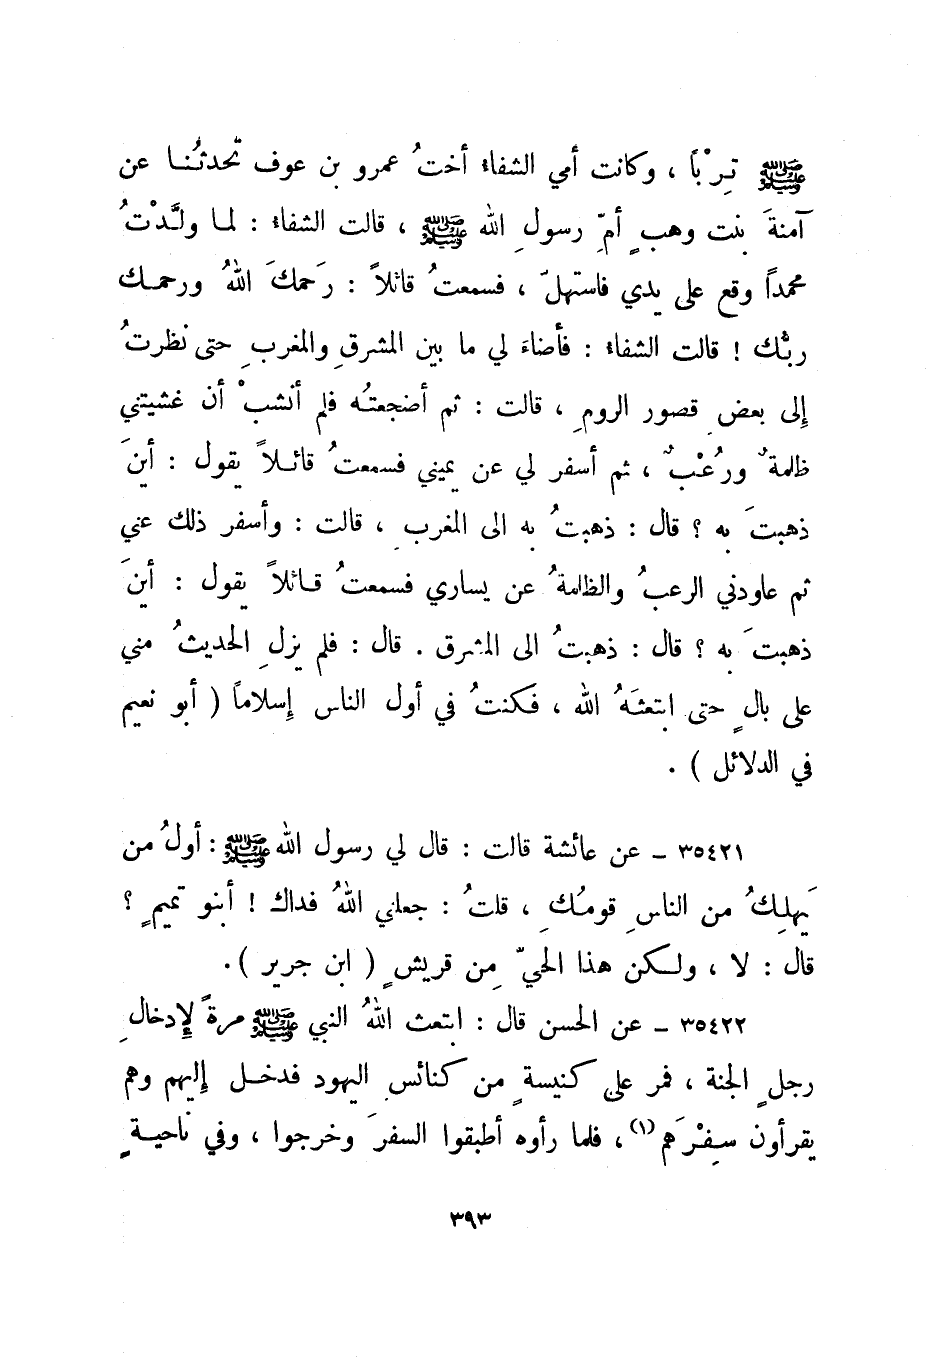 ﷺ تِرْباً ، وكانت أمي الشفاء أختُ عمرو بن عوف تحدثُنا عن
آمنةَ بنت وهبٍ أمِّ رسولِ الله ﷺ ، قالت الشفاء : لما ولَّدْتُ
محمداً وقع على يدي فاستهلّ ، فسمعتُ قائلاً : رَحمكَ اللهُ ورحمك
ربُّك ! قالت الشفاء : فأضاءَ لي ما بين المشرقِ والمغربِ حتى نظرتُ
إلى بعضِ قصور الرومِ ، قالت : ثم أضجعتُه فلم أنشبْ أن غشيتني
ظلمةٌ ورُعْبٌ ، ثم أسفر لي عن يميني فسمعتُ قائلاً يقول : أينَ
ذهبتَ به ؟ قال : ذهبتُ به الى المغربِ ، قالت : وأسفر ذلك عني
ثم عاودني الرعبُ والظلمةُ عن يساري فسمعتُ قائلاً يقول : أينَ
ذهبتَ به ؟ قال : ذهبتُ الى المشرق . قال : فلم يزلِ الحديثُ مني
على بالٍ حتى ابتعثَهُ الله ، فكنتُ في أول الناس إسلاماً ( أبو نعيم
في الدلائل ) .
٣٥٤٢١ ـ عن عائشة قالت : قال لي رسول الله ﷺ : أولُ من
يَهلِكُ من الناسِ قومُكِ ، قلتُ : جعلني اللهُ فداك ! أبنو تميمٍ ؟
قال : لا ، ولكن هذا الحيّ مِن قريشٍ ( ابن جرير ) .
٣٥٤٢٢ ـ عن الحسن قال : ابتعث اللهُ النبي ﷺ مرةً لإِدخالِ
رجلٍ الجنة ، فمر على كنيسةٍ من كنائسِ اليهود فدخل إليهم وهم
يقرأون سِفْرَهم (١) ، فلما رأوه أطبقوا السفرَ وخرجوا ، وفي ناحيةٍ
٣٩٣